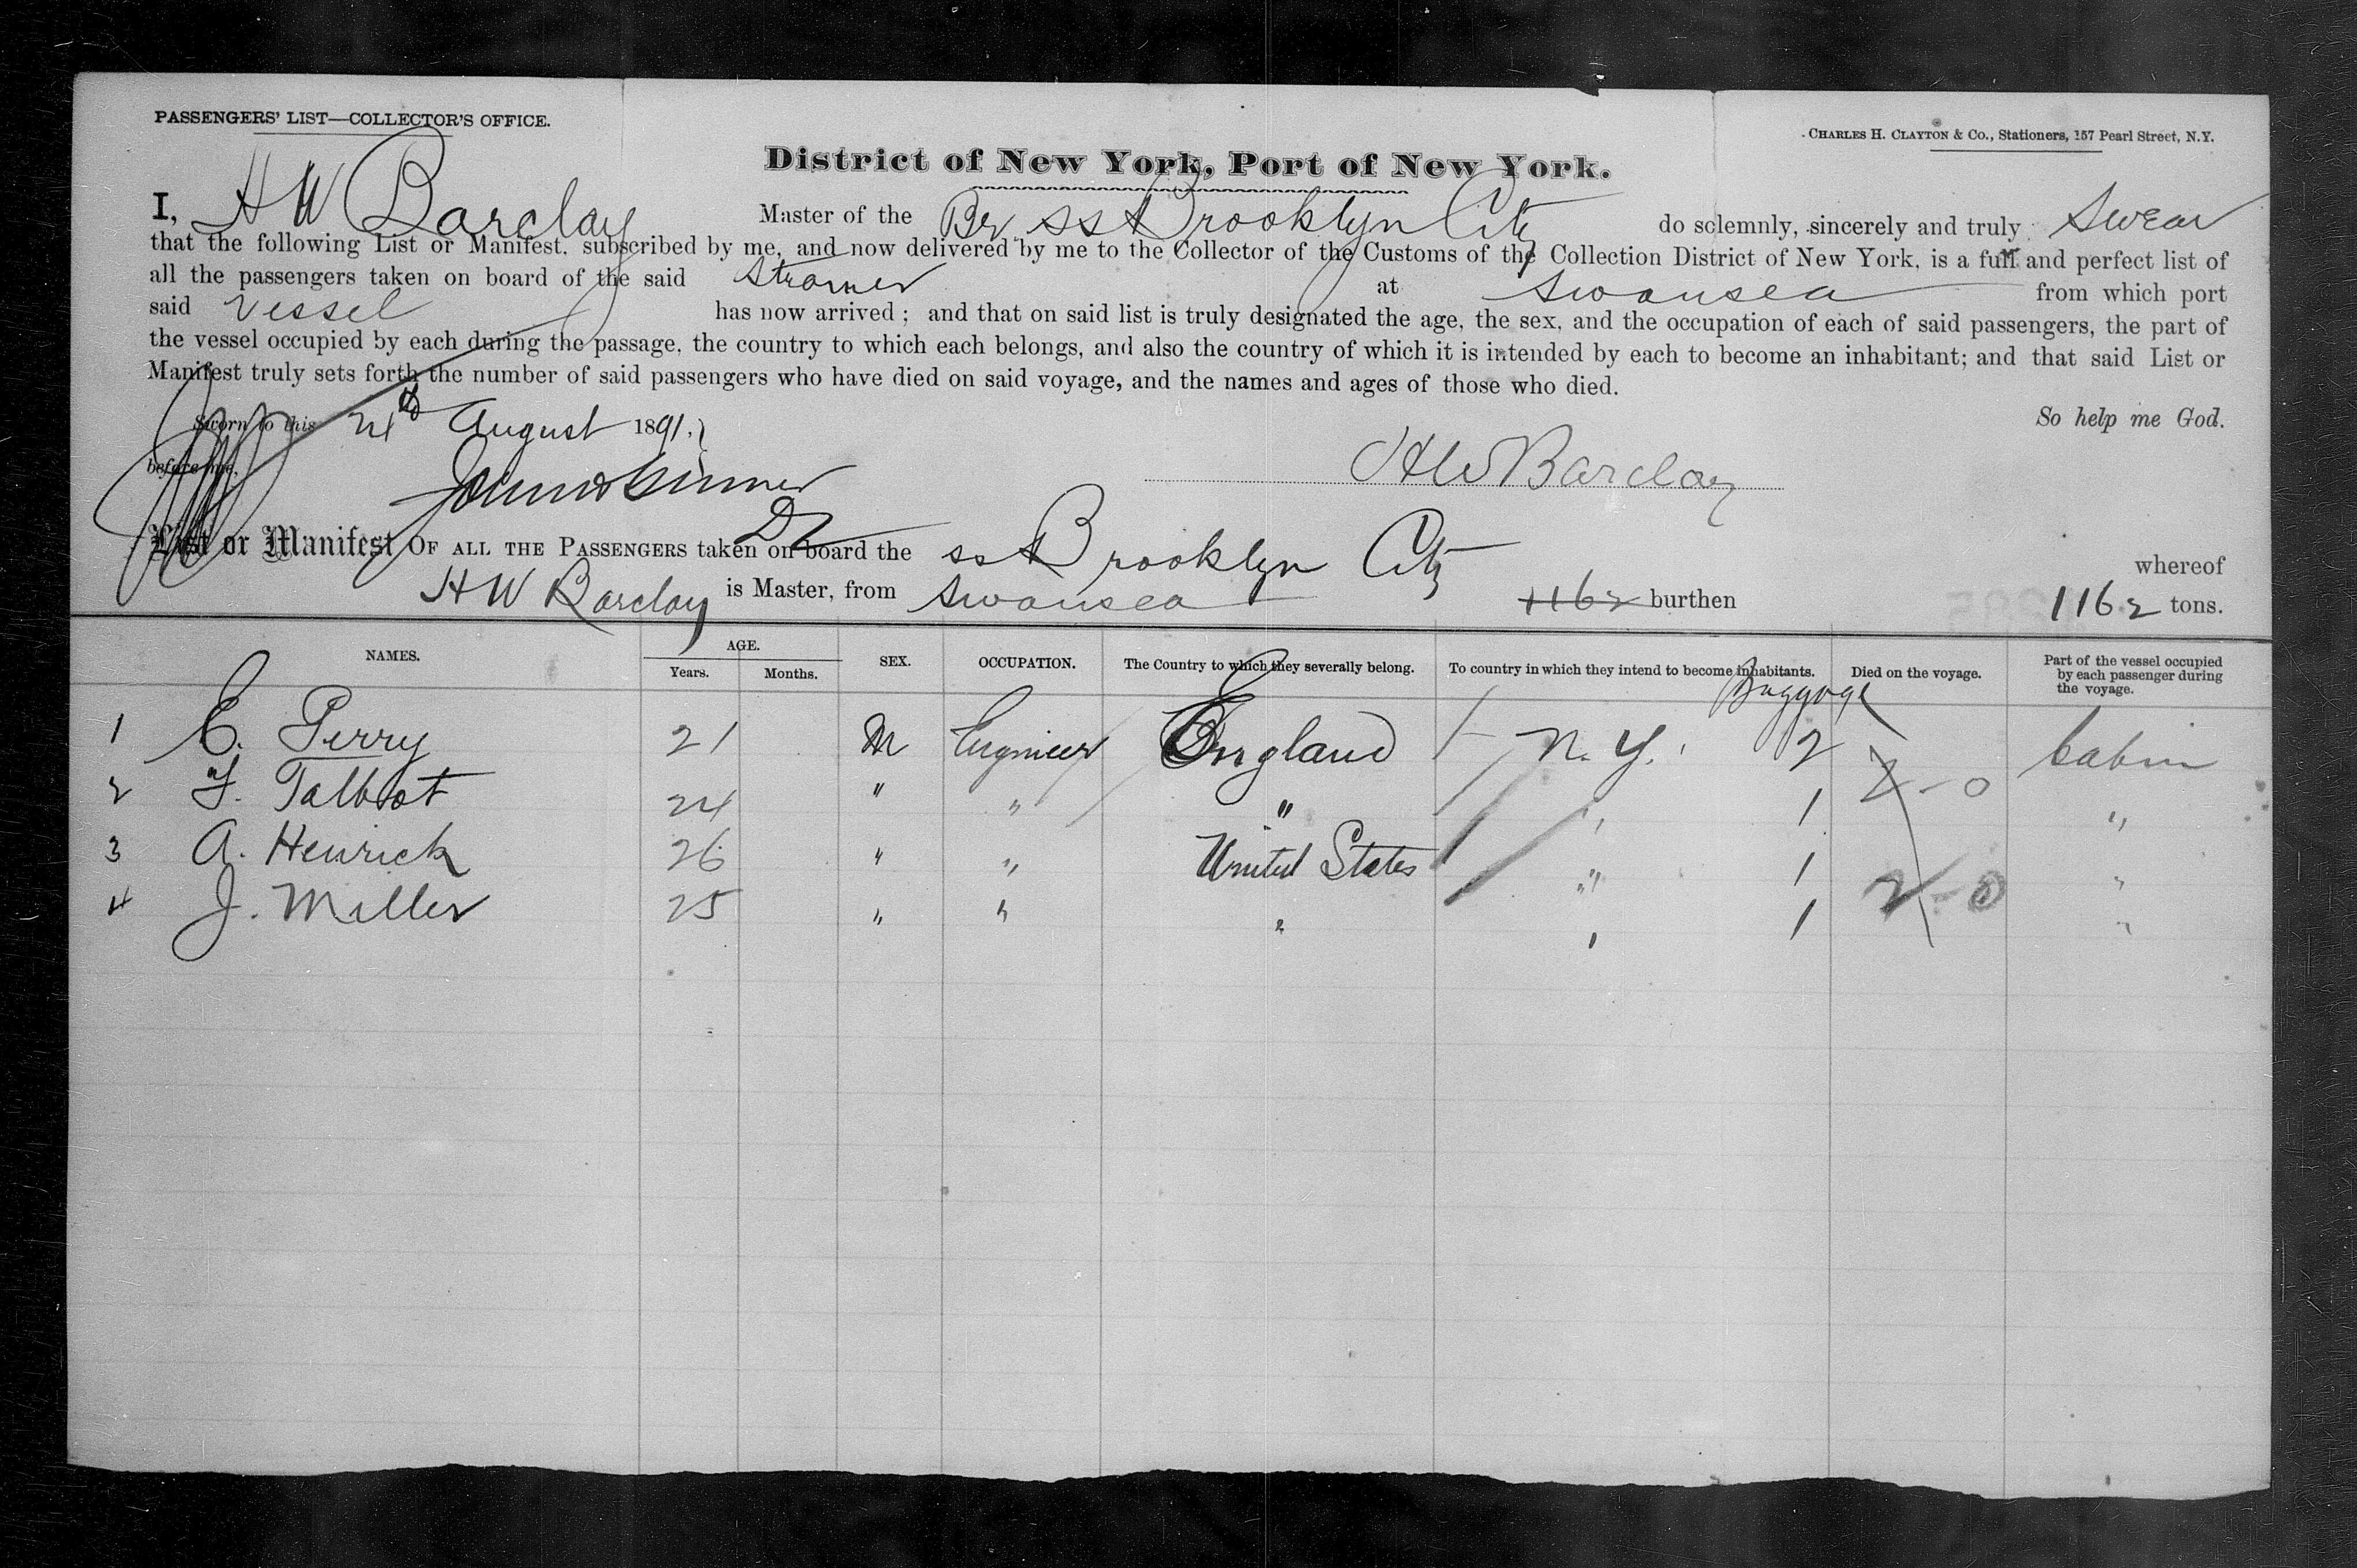 PASSENGERS' LIST—COLLECTOR'S OFFICE.
CHARLES H. CLAYTON & Co., Stationers, 157 Pearl Street, N.Y.
District of New York, Port of New York.
I, H W Barclay Master of the Br. SS Brooklyn City do solemnly, sincerely and truly Swear
that the following List or Manifest, subscribed by me, and now delivered by me to the Collector of the Customs of the Collection District of New York, is a full and perfect list of
all the passengers taken on board of the said Steamer at Swansea from which port
said Vessel has now arrived; and that on said list is truly designated the age, the sex, and the occupation of each of said passengers, the part of
the vessel occupied by each during the passage, the country to which each belongs, and also the country of which it is intended by each to become an inhabitant; and that said List or
Manifest truly sets forth the number of said passengers who have died on said voyage, and the names and ages of those who died.
Sworn to this 24th August 1891. So help me God.
before me,
H W Barclay
List or Manifest OF ALL THE PASSENGERS taken on board the SS Brooklyn City whereof
H W Barclay is Master, from Swansea 1162 burthen 1162 tons.
NAMES. AGE. Years. Months. SEX. OCCUPATION. The Country to which they severally belong. To country in which they intend to become inhabitants. Died on the voyage. Part of the vessel occupied by each passenger during the voyage.
Baggage
1 C. Perry 21 M Engineer England N.Y. 2 Cabin
2 F. Talbot 24 " " " " 1 2-0 "
3 A. Henrick 26 " " United States " 1 "
4 J. Miller 25 " " " " 1 2-0 "